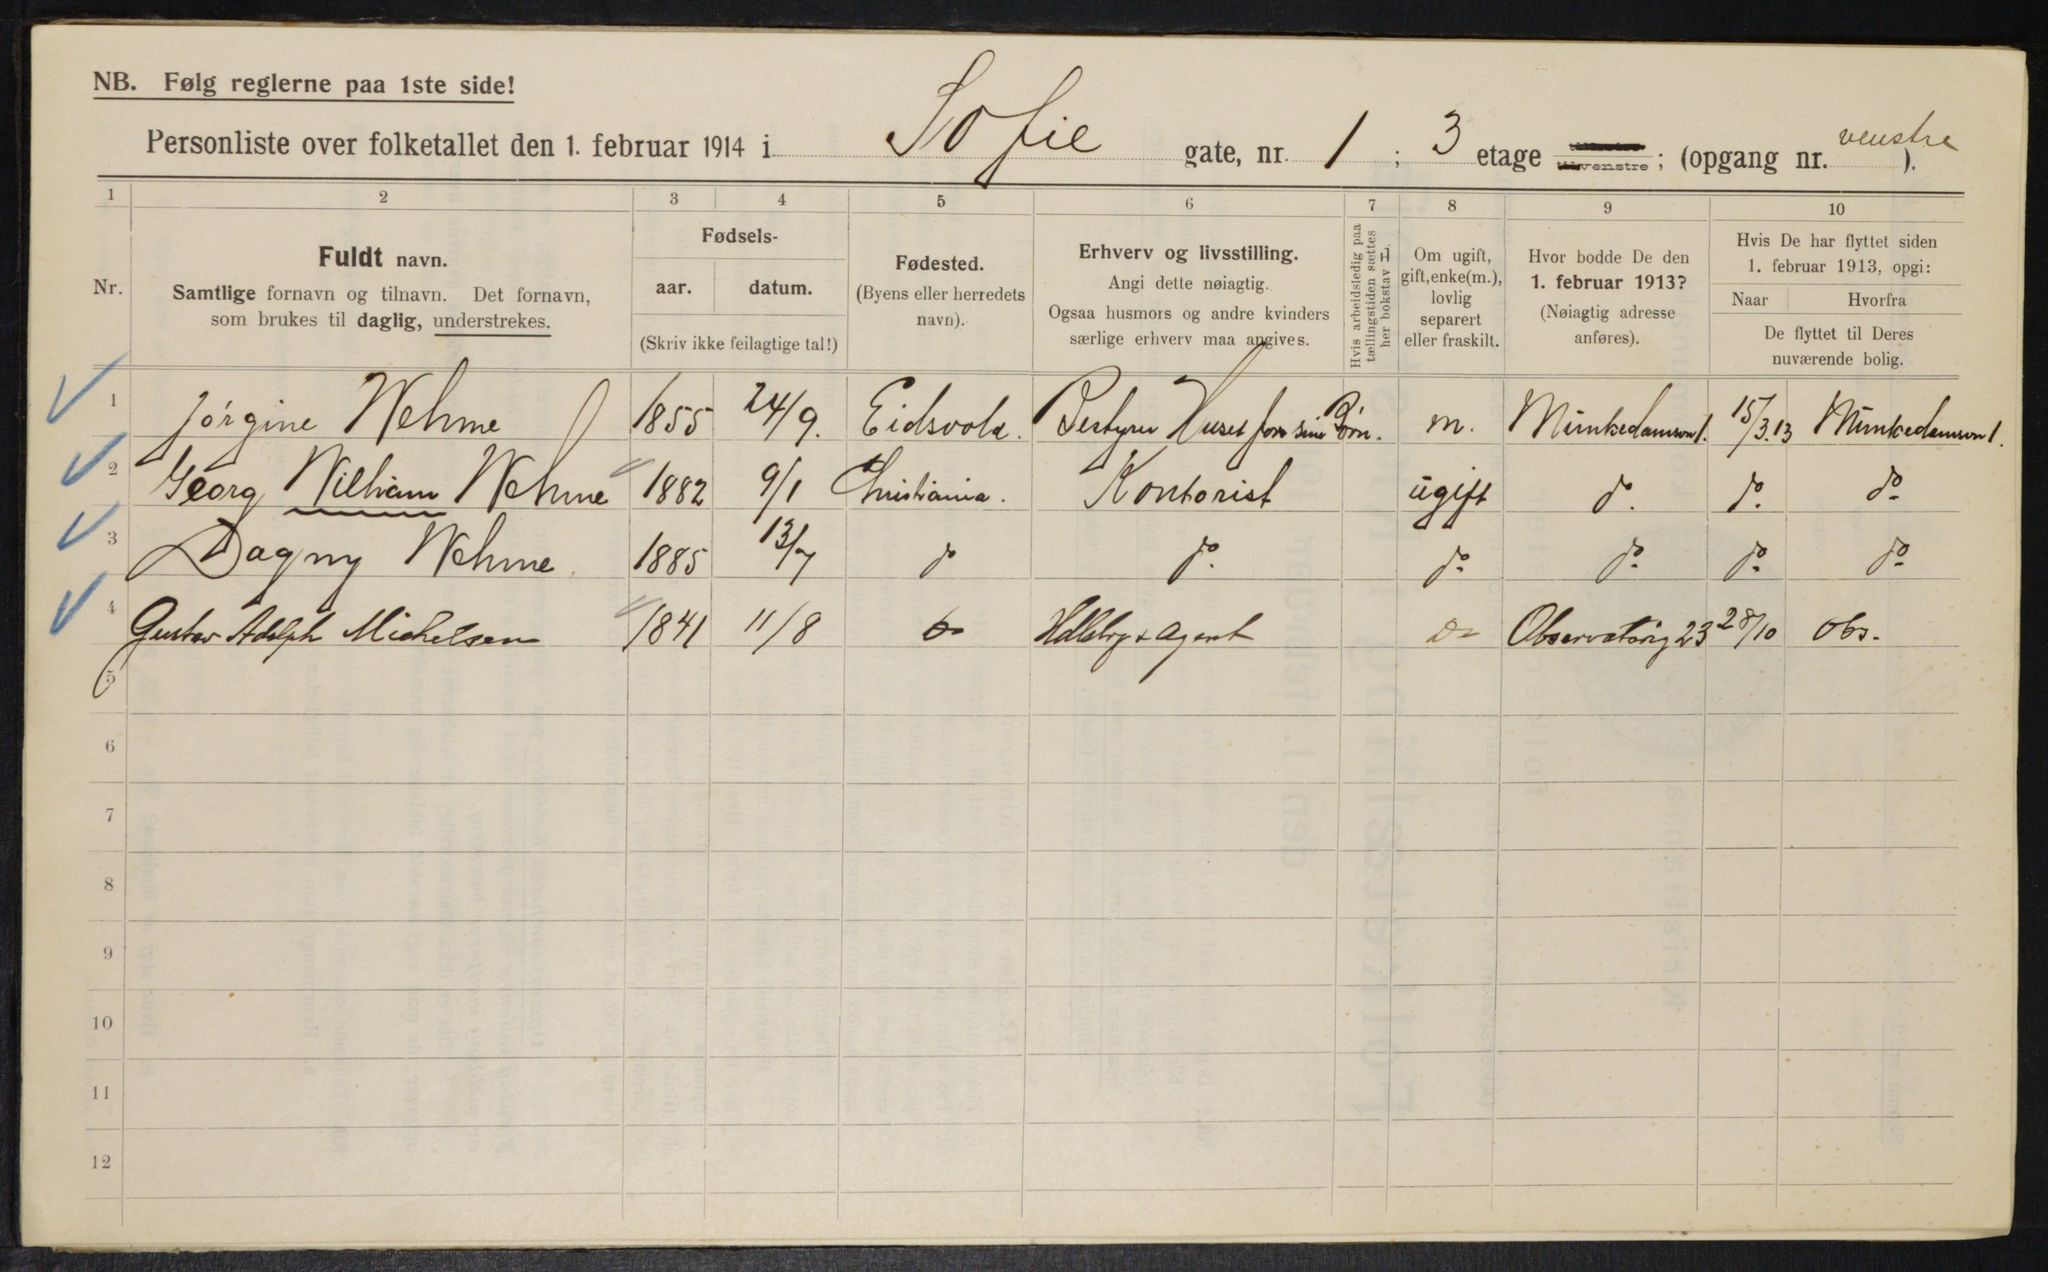 NB. Følg reglerne paa 1ste side!
Personliste over folketallet den 1. februar 1914 i Sofie gate, nr. 1 ; 3 etage tilvenstre ; (opgang nr. venstre ).
1 2 3 4 5 6 7 8 9 10
Nr.
Fuldt navn.
Samtlige fornavn og tilnavn. Det fornavn,
som brukes til daglig, understrekes.
Fødsels-
aar. datum.
(Skriv ikke feilagtige tal!)
Fødested.
(Byens eller herredets
navn).
Erhverv og livsstilling.
Angi dette nøiagtig.
Ogsaa husmors og andre kvinders
særlige erhverv maa angives.
Hvis arbeidsledig paa
tællingstiden sættes
her bokstav H.
Om ugift,
gift, enke(m.),
lovlig
separert
eller fraskilt.
Hvor bodde De den
1. februar 1913?
(Nøiagtig adresse
anføres).
Hvis De har flyttet siden
1. februar 1913, opgi:
Naar Hvorfra
De flyttet til Deres
nuværende bolig.
1 Jørgine Wehme 1855 24/9. Eidsvold. Bestyrer Huset for sine Börn. m. Munkedamsvn 1. 15/3.13 Munkedamsvn 1.
2 Georg William Wehme 1882 9/1 Christiania. Kontorist ugift do. do. do
3 Dagny Wehme. 1885 13/7 do do. do do do do
4 Gustav Adolph Michelsen 1841 11/8 do Agent do Observatorig 23 28/10 Obs.
5
6
7
8
9
10
11
12